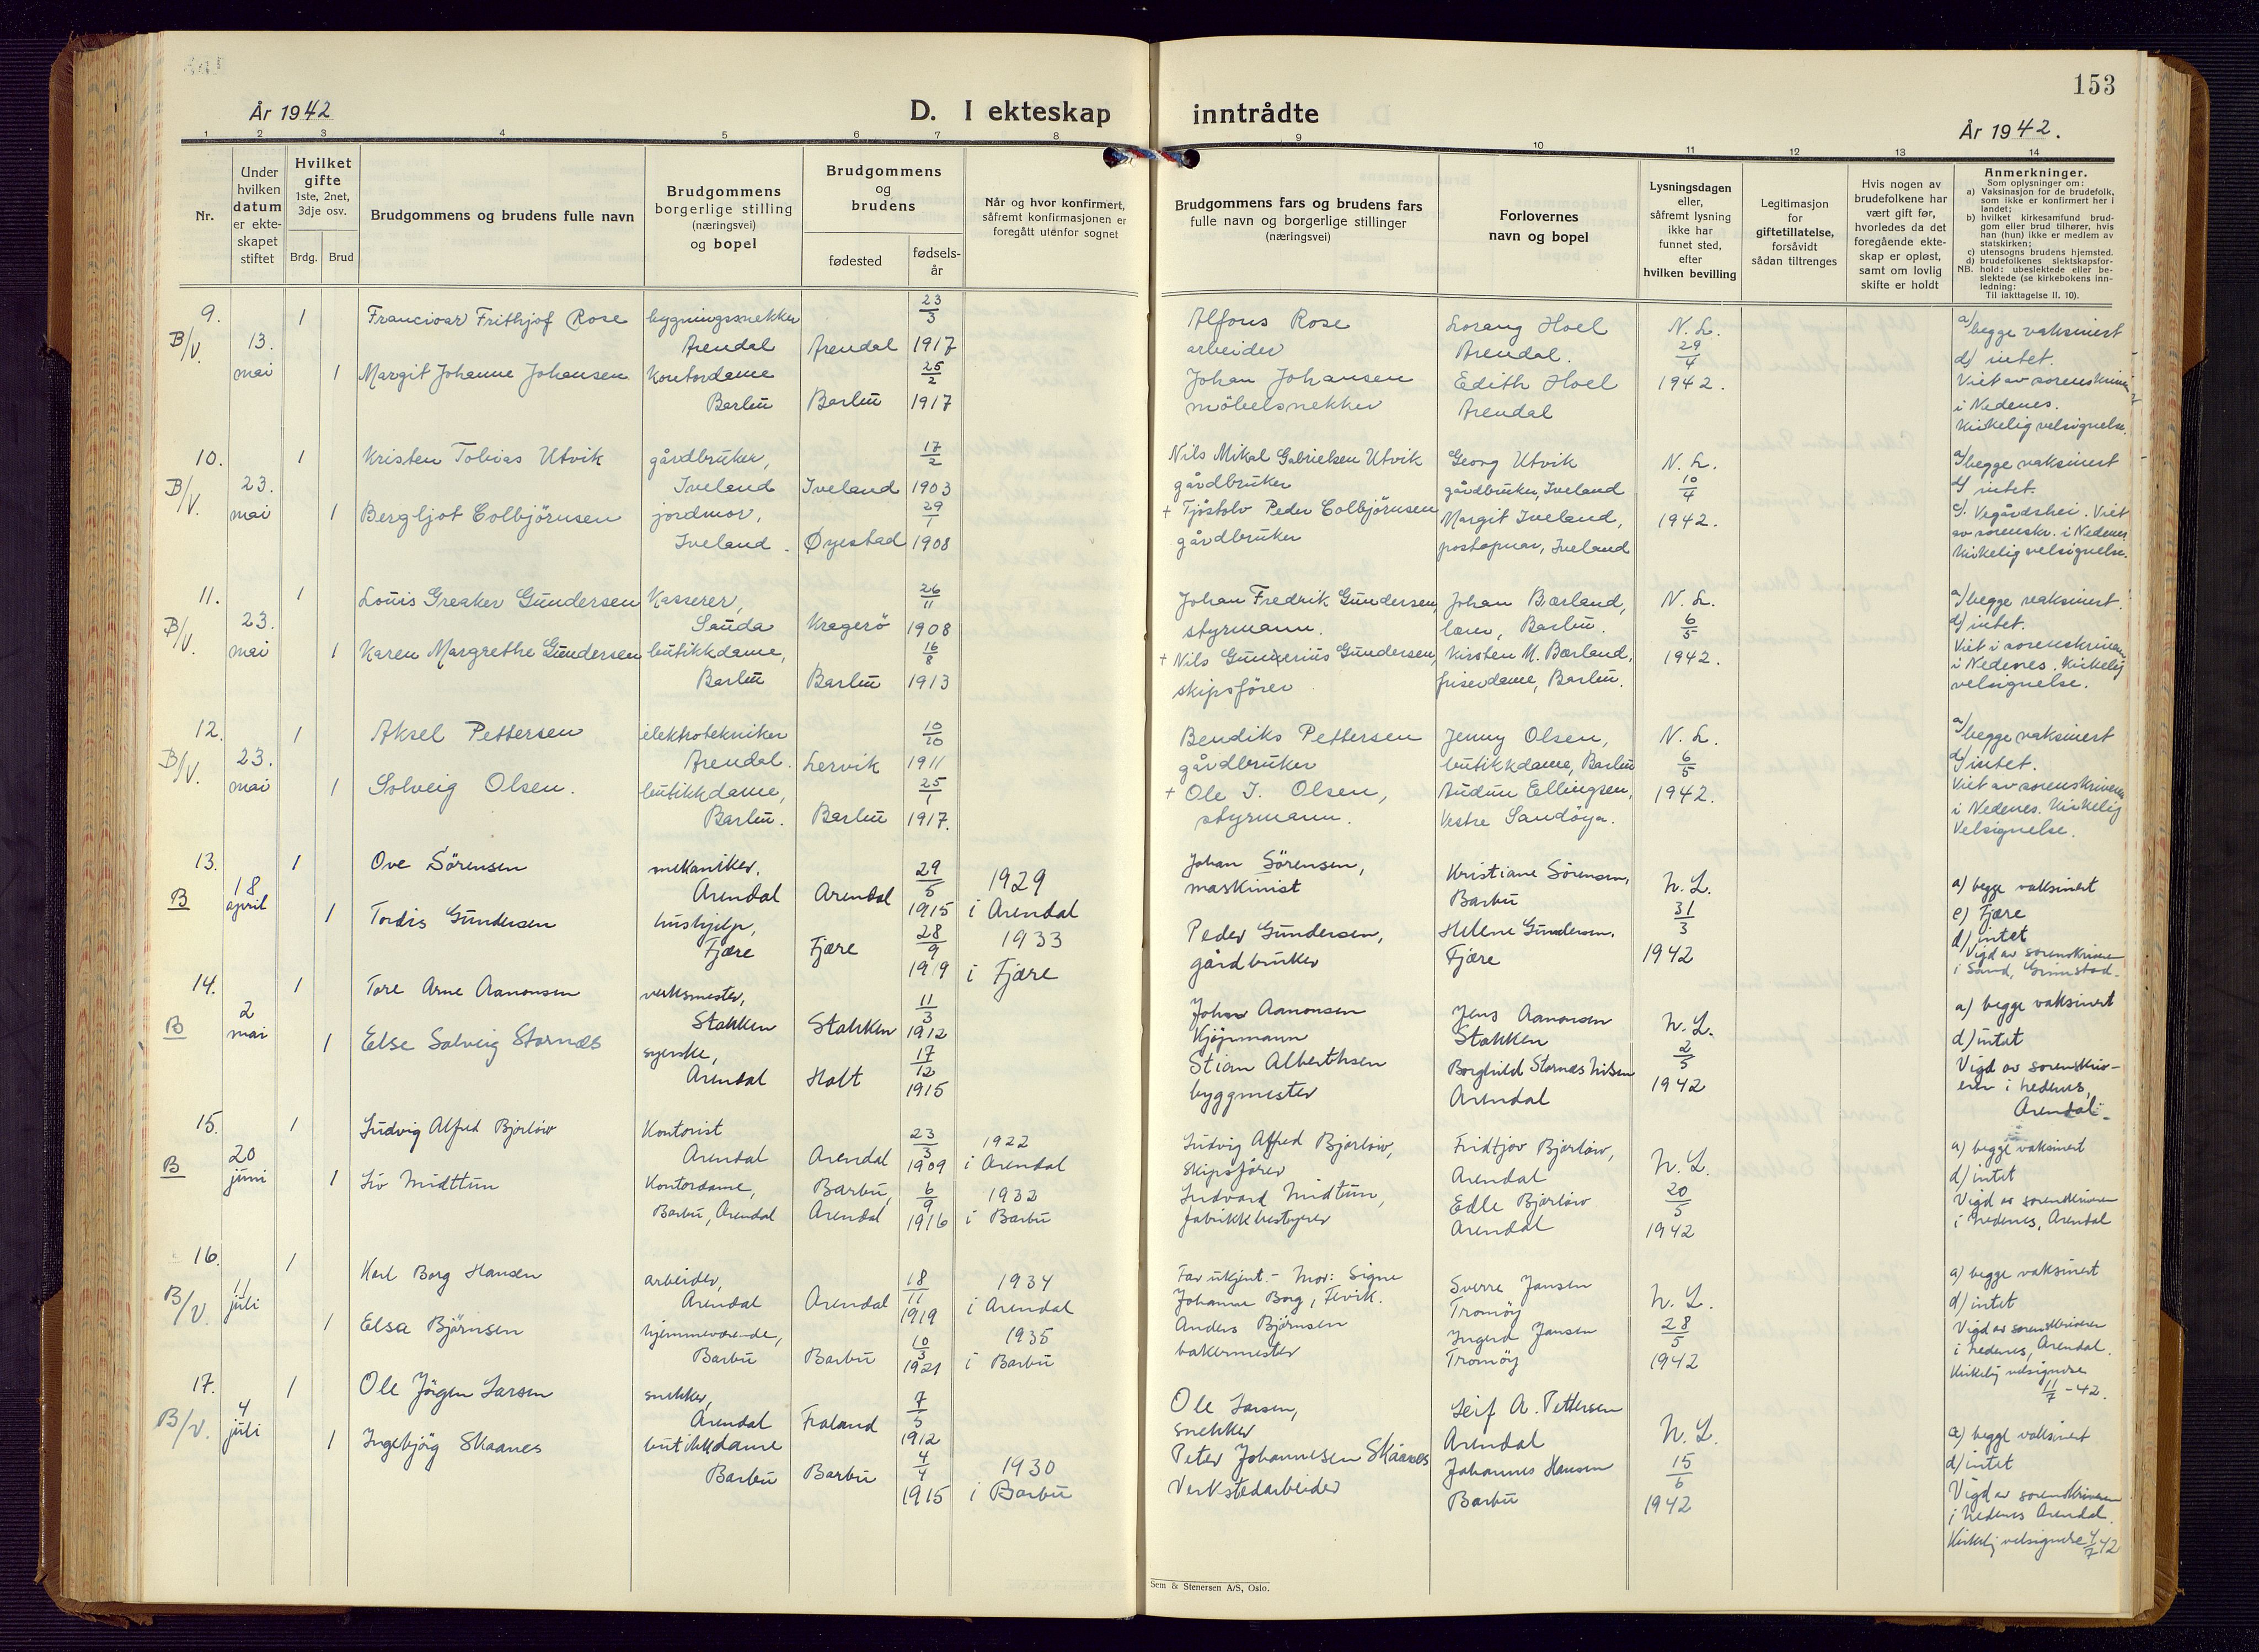 153
År 1942
D. I ekteskap inntrådte
År 1942.
1 2 3 4 5 6 7 8 9 10 11 12 13 14
Nr.
Under hvilken datum er ekteskapet stiftet
Hvilket gifte
1ste, 2net, 3dje osv.
Brdg. Brud
Brudgommens og brudens fulle navn
Brudgommens borgerlige stilling (næringsvei) og bopel
Brudgommens og brudens
fødested
fødselsår
Når og hvor konfirmert, såfremt konfirmasjonen er foregått utenfor sognet
Brudgommens fars og brudens fars fulle navn og borgerlige stillinger (næringsvei)
Forlovernes navn og bopel
Lysningsdagen eller, såfremt lysning ikke har funnet sted, efter hvilken bevilling
Legitimasjon for giftetillatelse, forsåvidt sådan tiltrenges
Hvis nogen av brudefolkene har vært gift før, hvorledes da det foregående ekteskap er opløst, samt om lovlig skifte er holdt
Anmerkninger.
Som oplysninger om:
a) Vaksinasjon for de brudefolk, som ikke er konfirmert her i landet;
b) hvilket kirkesamfund brudgom eller brud tilhører, hvis han (hun) ikke er medlem av statskirken;
c) utensogns brudens hjemsted.
d) brudefolkenes slektskapsforhold: ubeslektede eller beslektede (se kirkebokens innledning:
NB. Til iakttagelse II. 10).
9. B/V. 13. mai
1 Frithjof Rose bygningssnekker Arendal Arendal 23/3 1917
1 Margit Johanne Johansen Kontordame Barbu Barbu 25/2 1917
Alfons Rose arbeider
Johan Johansen möbelsnekker
Lorang Hoel Arendal.
Edith Hoel Arendal
N. L. 29/4 1942.
a/ begge vaksinert
d/ intet.
Viet av sorenskriver
i Nedenes.
Kirkelig velsignelse.
10. B/V. 23. mai
1 Kristen Tobias Utvik gårdbruker, Iveland Iveland 17/2 1903
1 Bergljot Colbjörnsen jordmor, Iveland. Øyestad 29/1 1908
Nils Mikal Gabrielsen Utvik gårdbruker
+ Tjöstolv Peder Colbjörnsen gårdbruker
Georg Utvik gårdbruker, Iveland
Margit Iveland, postopnar, Iveland
N. L. 10/4 1942.
a/ begge vaksinert
d/ intet.
c/. Vegårdshei. Viet
av sorenskr. i Nedenes
Kirkelig velsignelse.
11. B/V. 23. mai
1 Louis Greaker Gundersen Kasserer, Sauda Kragerö 26/11 1908
1 Karen Margrethe Gundersen butikkdame, Barbu Barbu 16/8 1913
Johan Fredrik Gundersen, styrmann.
+ Nils Gunerius Gundersen, skipsförer
Johan Bærland, Barbu.
Kirsten M. Bærland, friserdame, Barbu.
N. L. 6/5 1942.
a/ begge vaksinert.
d/ intet.
Viet i sorenskriveren
i Nedenes. Kirkelig
velsignelse.
12. B/V. 23. mai
1 Aksel Pettersen elektrotekniker Arendal. Lervik 10/10 1911
1 Solveig Olsen. butikkdame, Barbu. Barbu 25/1 1917.
Bendiks Pettersen gårdbruker
+ Ole J. Olsen, styrmann.
Jenny Olsen, butikkdame, Barbu
Audun Ellingsen, Vestre Sandöya.
N. L. 6/5 1942.
a/ begge vaksinert
d/ intet.
Viet av sorenskriveren
i Nedenes. Kirkelig
velsignelse.
13. B 18 april
1 Ove Sörensen mekaniker. Arendal Arendal 29/5 1915 1929 i Arendal
1 Tordis Gundersen hushjelp, Fjære Fjære 28/9 1919 1933 i Fjære
Johan Sörensen, maskinist
Peder Gundersen, gårdbruker
Kristiane Sörensen, Barbu
Helene Gundersen. Fjære
N. L. 31/3 1942
a) begge vaksinert
c) Fjære
d) intet
Vigd av sorenskriveren
i Sand, Grimstad.
14. B 2 mai
1 Tore Arne Aanonsen verksmester, Stokken Stokken 11/3 1912
1 Else Solveig Stornes syerske, Arendal Holt 17/12 1915
Johan Aanonsen Kjöpmann
Stian Alberthsen byggmester
Jens Aanonsen Stokken
Borghild Stornes Nilsen Arendal
N. L. 2/5 1942
a) begge vaksinert
d) intet
Vigd av sorenskriveren
i Nedenes,
Arendal.
15. B 20 juni
1 Ludvig Alfred Bjorlow Kontorist Arendal Arendal 23/3 1909 1922 i Arendal
1 Liv Midttun Kontordame, Barbu, Arendal Barbu, Arendal 6/9 1916 1932 i Barbu
Ludvig Alfred Bjorlow, skipsförer
Midtun, fabrikkbestyrer
Fridtjov Bjorlow, Arendal
Edle Bjorlow Arendal
N. L. 20/5 1942
a) begge vaksinert
d) intet
Vigd av sorenskriveren
i Nedenes, Arendal
16. B/V. 11 juli
1 Karl Borg Hansen arbeider, Arendal Arendal 18/11 1919 1934 i Arendal
1 Elsa Björnsen hjemmeværende, Barbu Barbu 10/3 1921 1935 i Barbu
Far ukjent. - Mor: Signe Johanne Borg, Fevik.
Anders Björnsen bakermester
Sverre Jansen Tromöy
Ingerd Jansen Tromöy
N. L. 28/5 1942
a) begge vaksinert
d) intet
Vigd av sorenskriveren
i Nedenes, Arendal.
Kirkelig velsignelse
11/7 - 42.
17. B/V. 4 juli
1 Ole Jörgen Larsen snekker, Arendal Froland 7/5 1912
1 Ingebjörg Skaanes butikkdame Barbu Barbu 4/4 1915 1930 i Barbu
Ole Larsen, snekker
Peter Johannesen Skaanes Verkstedarbeider
Leif A. Pettersen Arendal
Johannes Hansen Barbu
N. L. 15/6 1942
a) begge vaksinert
d) intet
Vigd av sorenskriveren
i Nedenes Arendal.
Kirkelig velsignelse 4/7 42
Sem & Stenersen A/S, Oslo.